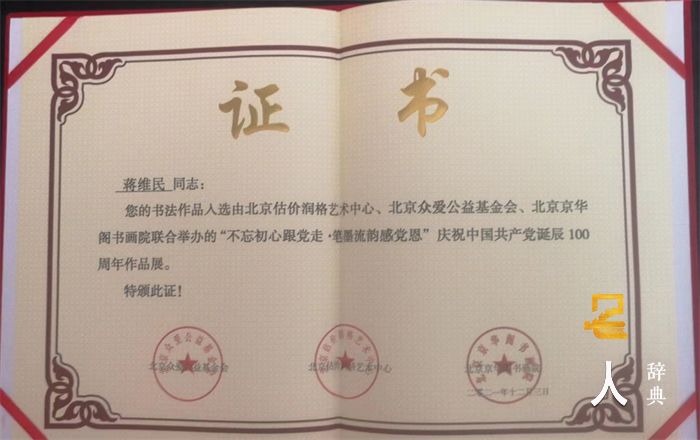 证书
蒋维民 同志：
您的书法作品入选由北京估价润格艺术中心、北京众爱公益基金会、北京京华
阁书画院联合举办的“不忘初心跟党走·笔墨流韵感党恩”庆祝中国共产党诞辰100
周年作品展。
特颁此证！
北京众爱公益基金会
北京估价润格艺术中心
北京京华阁书画院
二〇二一年十二月三日
人 辞典